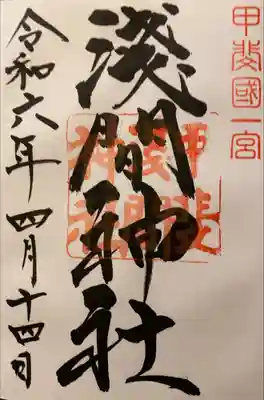 甲斐國一宮
淺間神社
令和六年四月十四日